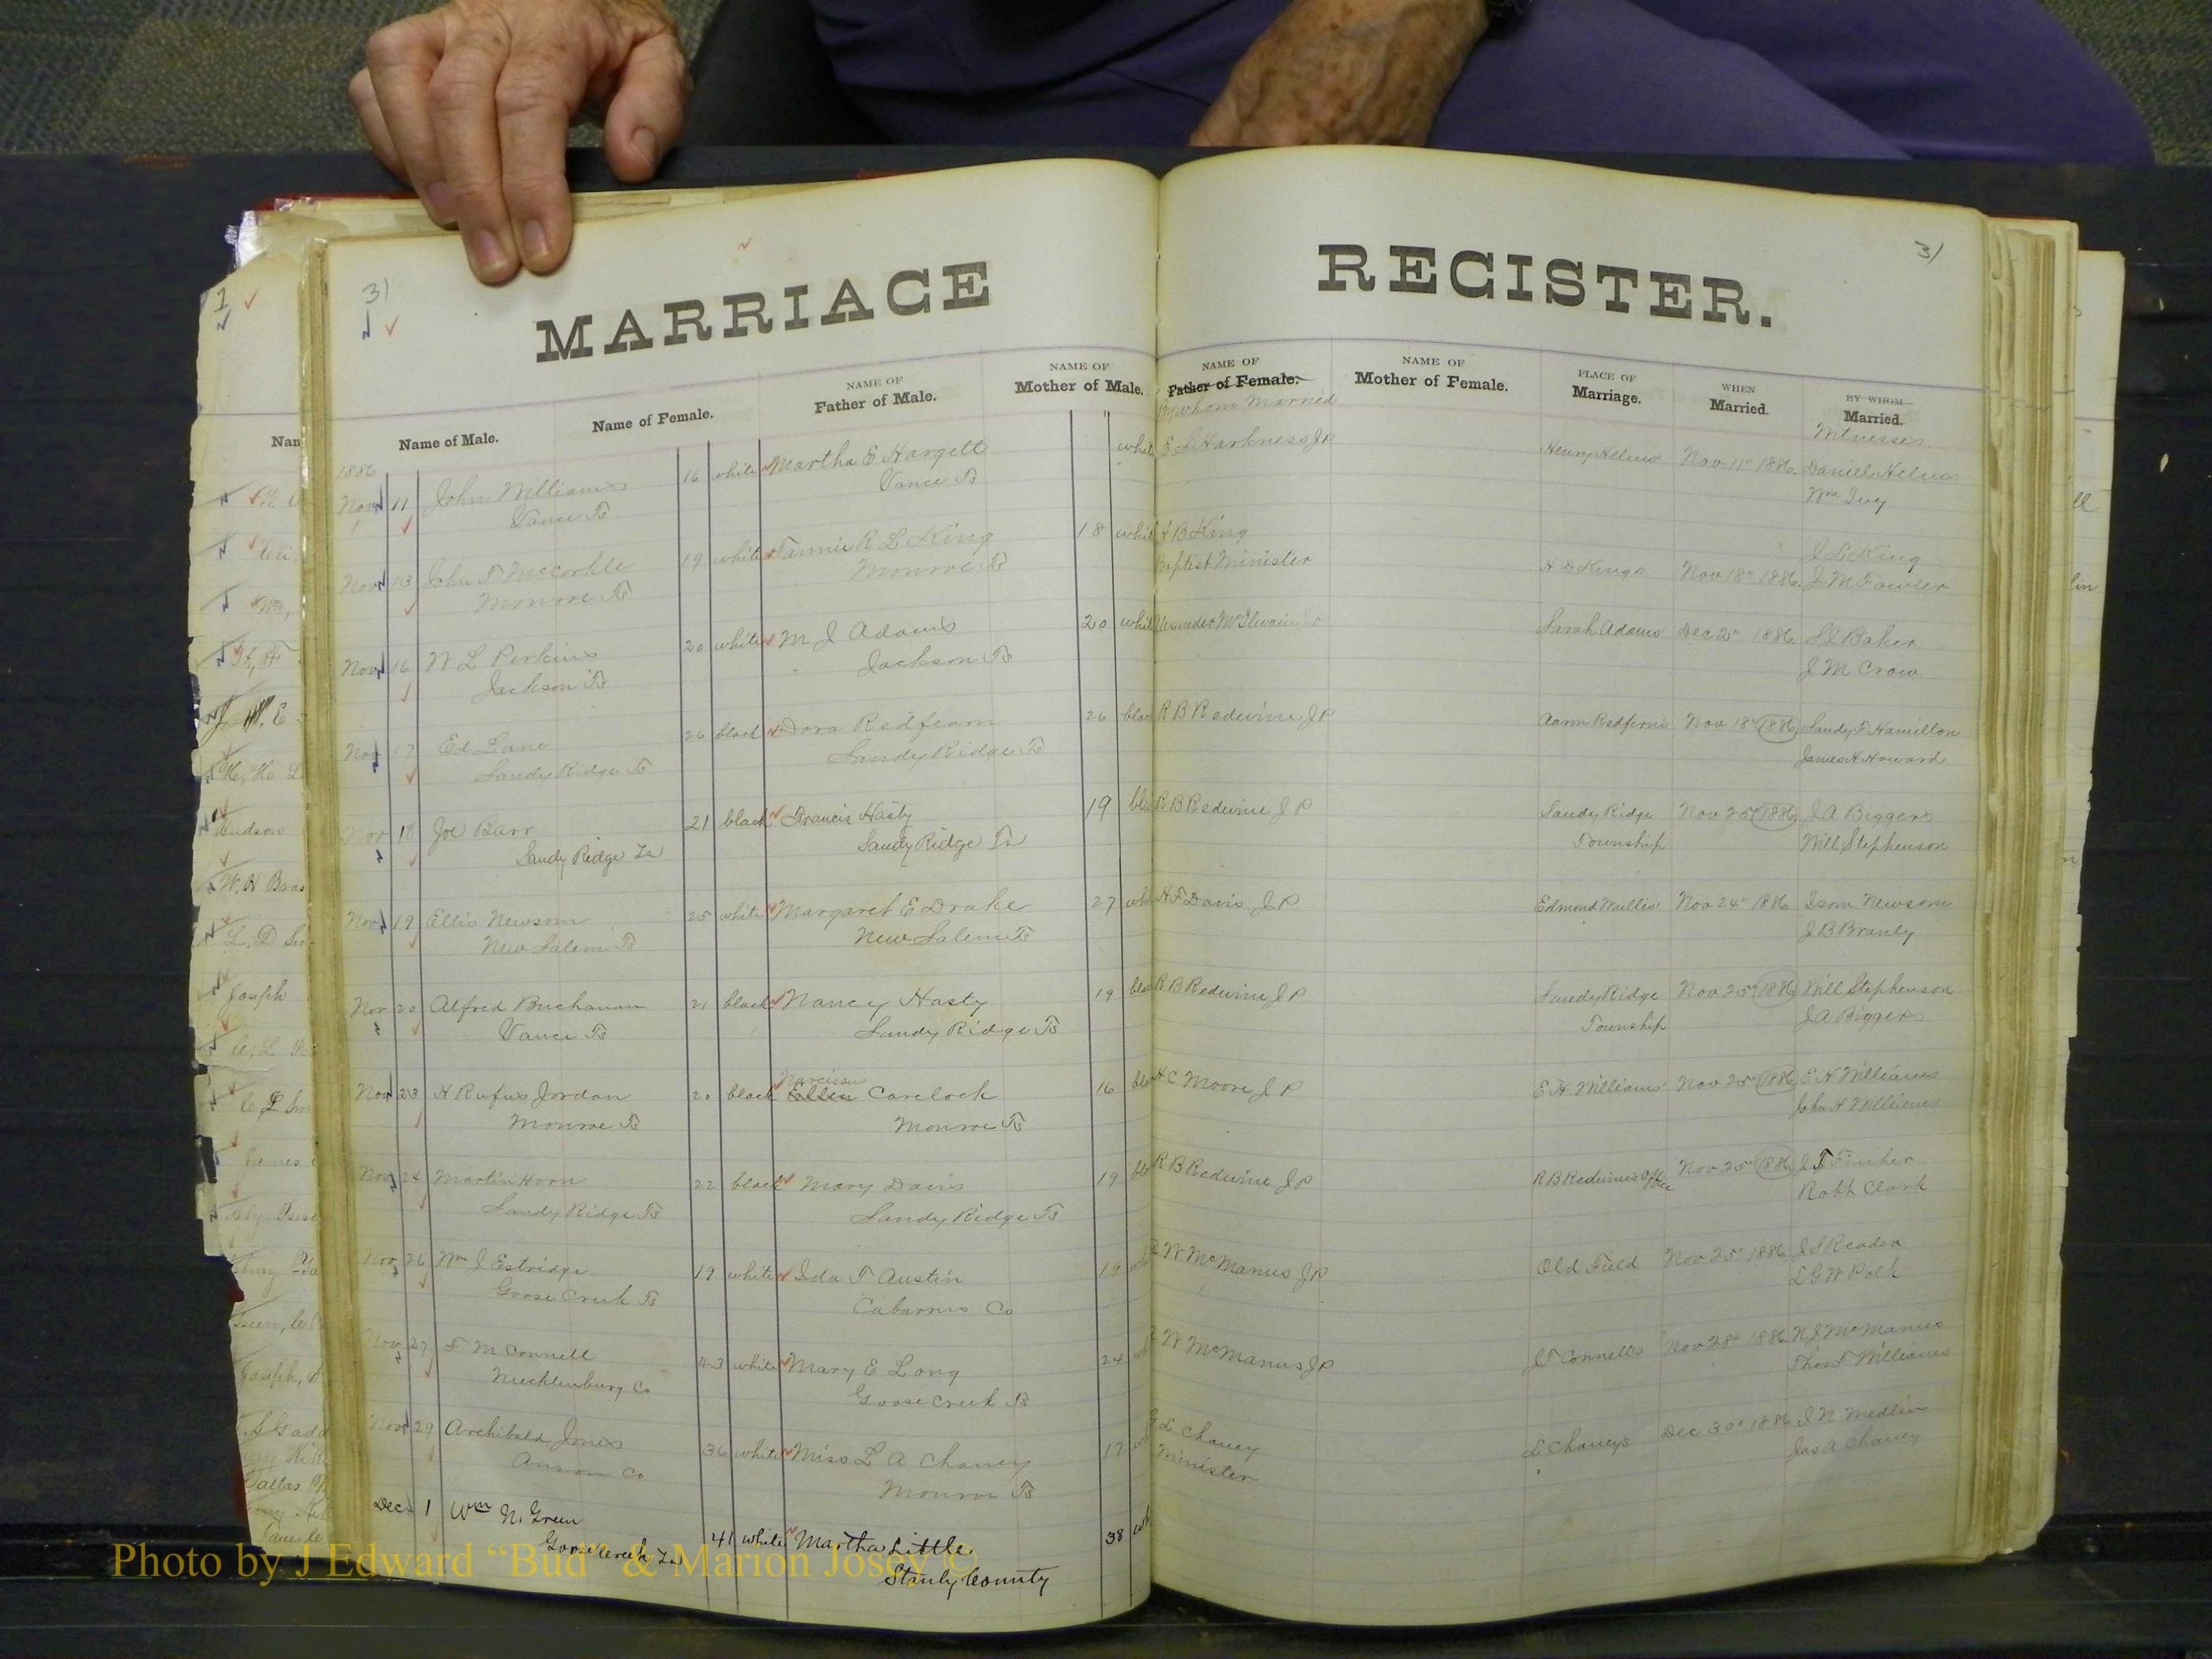 31
MARRIAGE
Name of Male.
Name of Female.
NAME OF
Father of Male.
NAME OF
Mother of Male.
1886
Nov 11 John Williams 16 white Martha E Hargett " whit
Vance Ts Vance Ts
Nov 13 John F McCorkle 19 white Fannie R L King 18 whit
Monroe Ts Monroe Ts
Nov 16 W L Perkins 20 white M J Adams 20 whit
Jackson Ts Jackson Ts
Nov 17 Ed Lane 26 black Dora Redfearn 26 blac
Sandy Ridge Ts Sandy Ridge Ts
Nov 18 Joe Barr 21 black Francis Hasty 19 bla
Sandy Ridge Ts Sandy Ridge Ts
Nov 19 Ellis Newsom 25 white Margaret E Drake 27 whi
New Salem Ts New Salem Ts
Nov 20 Alfred Buchanan 21 black Nancy Hasty 19 bla
Vance Ts Sandy Ridge Ts
Narcissus
Nov 23 H Rufus Jordan 20 black Ellen Carelock 16 bla
Monroe Ts Monroe Ts
Nov 24 Martin Horn 22 black Mary Davis 19 bla
Sandy Ridge Ts Sandy Ridge Ts
Nov 26 Wm J Estridge 19 white Ida F Austin 19
Goose Creek Ts Cabarrus Co
Nov 27 F M Connell 43 white Mary E Long 24
Mecklenburg Co Goose Creek Ts
Nov 29 Archibald Jones 36 white Miss L A Chaney 17
Anson Co Monroe Ts
Dec 1 Wm N. Green 41 white Martha Little 38 wh
Goose Creek Ts Stanly County
REGISTER.
31
NAME OF
Father of Female.
By whom Married
NAME OF
Mother of Female.
PLACE OF
Marriage.
WHEN
Married.
BY WHOM
Married.
Witnesses.
E S Harkness J P Henry Helms' Nov 11" 1886. Daniel Helms
Wm Ivy
A B King J L King
Baptist Minister H D Kings Nov 18" 1886. J M Fowler
McIlwain Sarah Adams' Dec 2" 1886 Baker
J M Crow
R B Redwine J P Aaron Redferns Nov 18" 1886 Sandy F Hamilton
James H Howard
R B Redwine J P Sandy Ridge Nov 25" 1886 J A Biggers
Township Will Stephenson
H F Davis J P Edmond Mullis' Nov 24" 1886 Isom Newsom
J B Branly
R B Redwine J P Sandy Ridge Nov 25" 1886 Will Stephenson
Township J A Biggers
H C Moore J P E H Williams' Nov 25" 1886 E H Williams
John H Williams
R B Redwine J P R B Redwines Office Nov 25" 1886 J F Fincher
Robt Clark
R W McManus J P Old Field Nov 25" 1886 J S Reader
L G W Polk
R W McManus J P J F Connells Nov 28" 1886 N J McManus
Thos F Williams
L Chaney L Chaneys Dec 30" 1886 J N Medlin
Minister Jas A Chaney
Nan
1
Judson
W. H Bras
L. D
Joseph
James
Joseph,
Dallas
Photo by J Edward “Bud” & Marion Josey ©